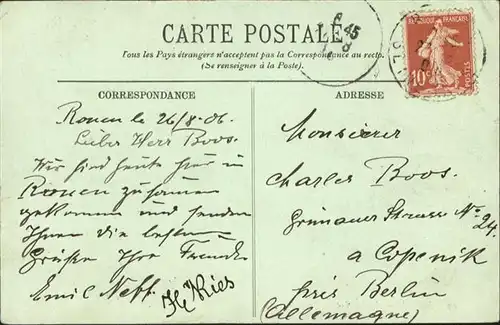 CARTE POSTALE
Tous les Pays étrangers n'acceptent pas la Correspondance au recto
(Se renseigner à la Poste).
RÉPUBLIQUE FRANÇAISE
10c
POSTES
6 45
CORRESPONDANCE
Rouen le 26/8. 06.
Lieber Herr Boos.
Wir sind heute hier in
Rouen zusammen
gekommen und senden
Ihnen die besten
Grüße Ihre Freunde
Emil Neff.
H. Kries
ADRESSE
Monsieur
Charles Boos.
Grünauer Strasse No 24.
a Copenik
près Berlin
(Allemagne)